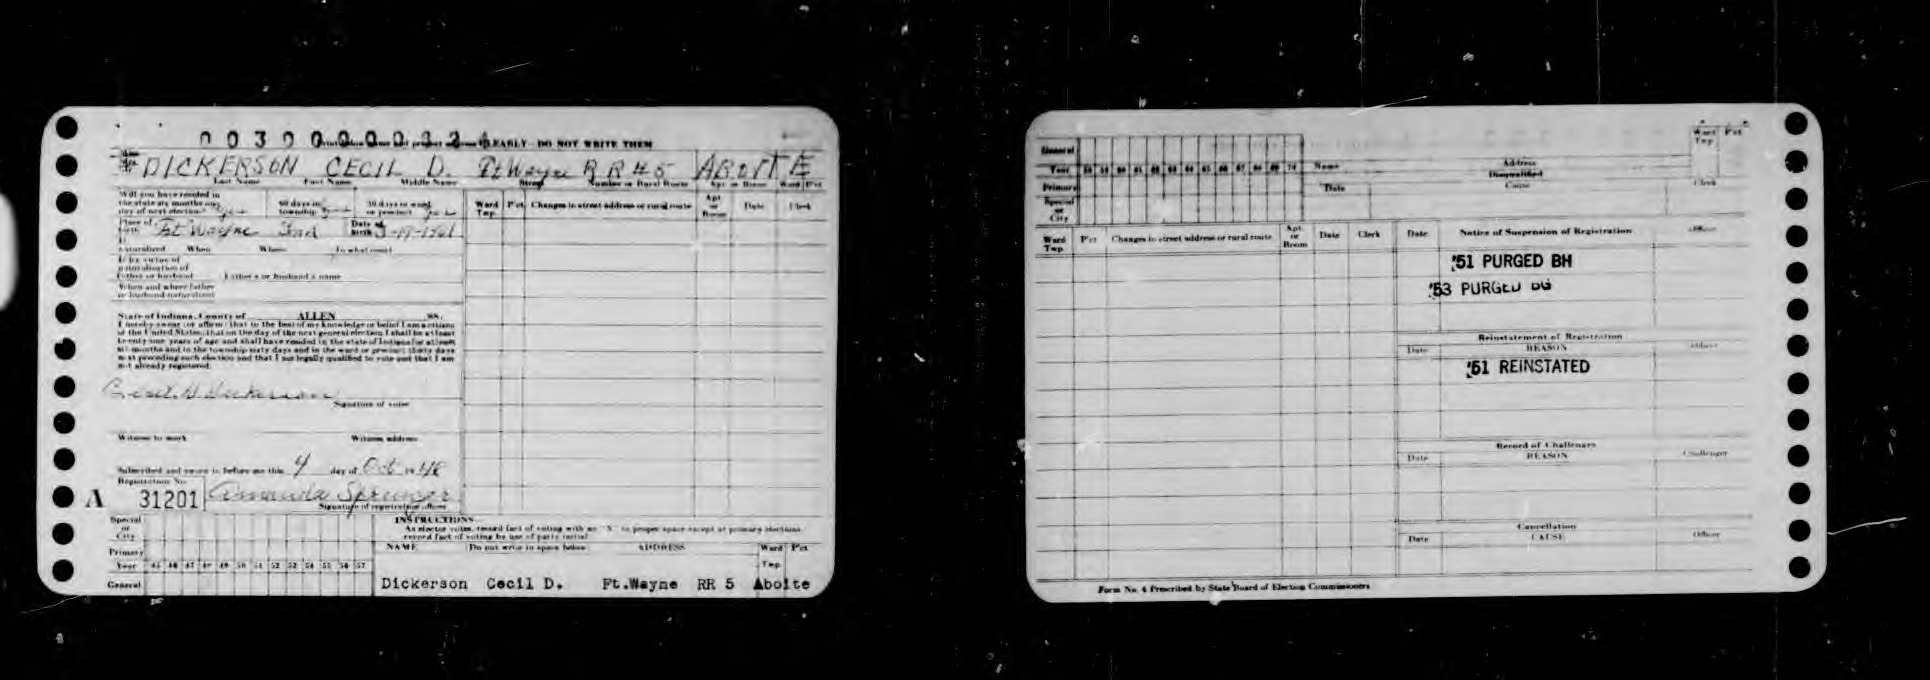 LEARLY - DO NOT WRITE THEM
DICKERSON CECIL D. Ft Wayne R R #5 ABOITE
Last Name First Name Middle Name Street Number or Rural Route Apt. or Room Ward Pct
Will you have resided in
the state six months on
day of next election? yes
60 days in
township yes
30 days in ward
or precinct yes
Place of
birth Ft Wayne Ind
Date of
birth
If
naturalized When Where In what court
If by virtue of
naturalization of
father or husband Father's or husband's name
When and where father
or husband naturalized
State of Indiana, County of ALLEN SS:
I hereby swear (or affirm) that to the best of my knowledge or belief I am a citizen
of the United States, that on the day of the next general election I shall be at least
twenty-one years of age and shall have resided in the state of Indiana for at least
six months and in the township sixty days and in the ward or precinct thirty days
next preceding such election and that I am legally qualified to vote and that I am
not already registered.
Cecil D. Dickerson
Signature of voter
Witness to mark Witness address
Subscribed and sworn to before me this 4 day of Oct 19 48
Registration No.
A 31201 Amanda Springer
Signature of registration officer
Special
or
City
Primary
Year 45 46 47 48 49 50 51 52 53 54 55 56 57
General
Ward
Twp.
Pct. Changes in street address or rural route
Apt.
or
Room
Date Clerk
INSTRUCTIONS
As elector votes, record fact of voting with an "X" in proper space except at primary elections
record fact of voting by use of party initial
NAME Do not write in space below ADDRESS Ward Pct.
Twp.
Dickerson Cecil D. Ft.Wayne RR 5 Aboite
General
Year 58 59 60 61 62 63 64 65 66 67 68 69 70
Primary
Special
or
City
Name Address
Ward
Twp
Pct
Disqualified
Date Cause Clerk
Ward
Twp.
Pct Changes in street address or rural route
Apt.
or
Room
Date Clerk
Date Notice of Suspension of Registration Officer
'51 PURGED BH
'53 PURGED BG
Reinstatement of Registration
Date REASON Officer
'51 REINSTATED
Record of Challenges
Date REASON Challenger
Cancellation
Date CAUSE Officer
Form No. 4 Prescribed by State Board of Election Commissioners